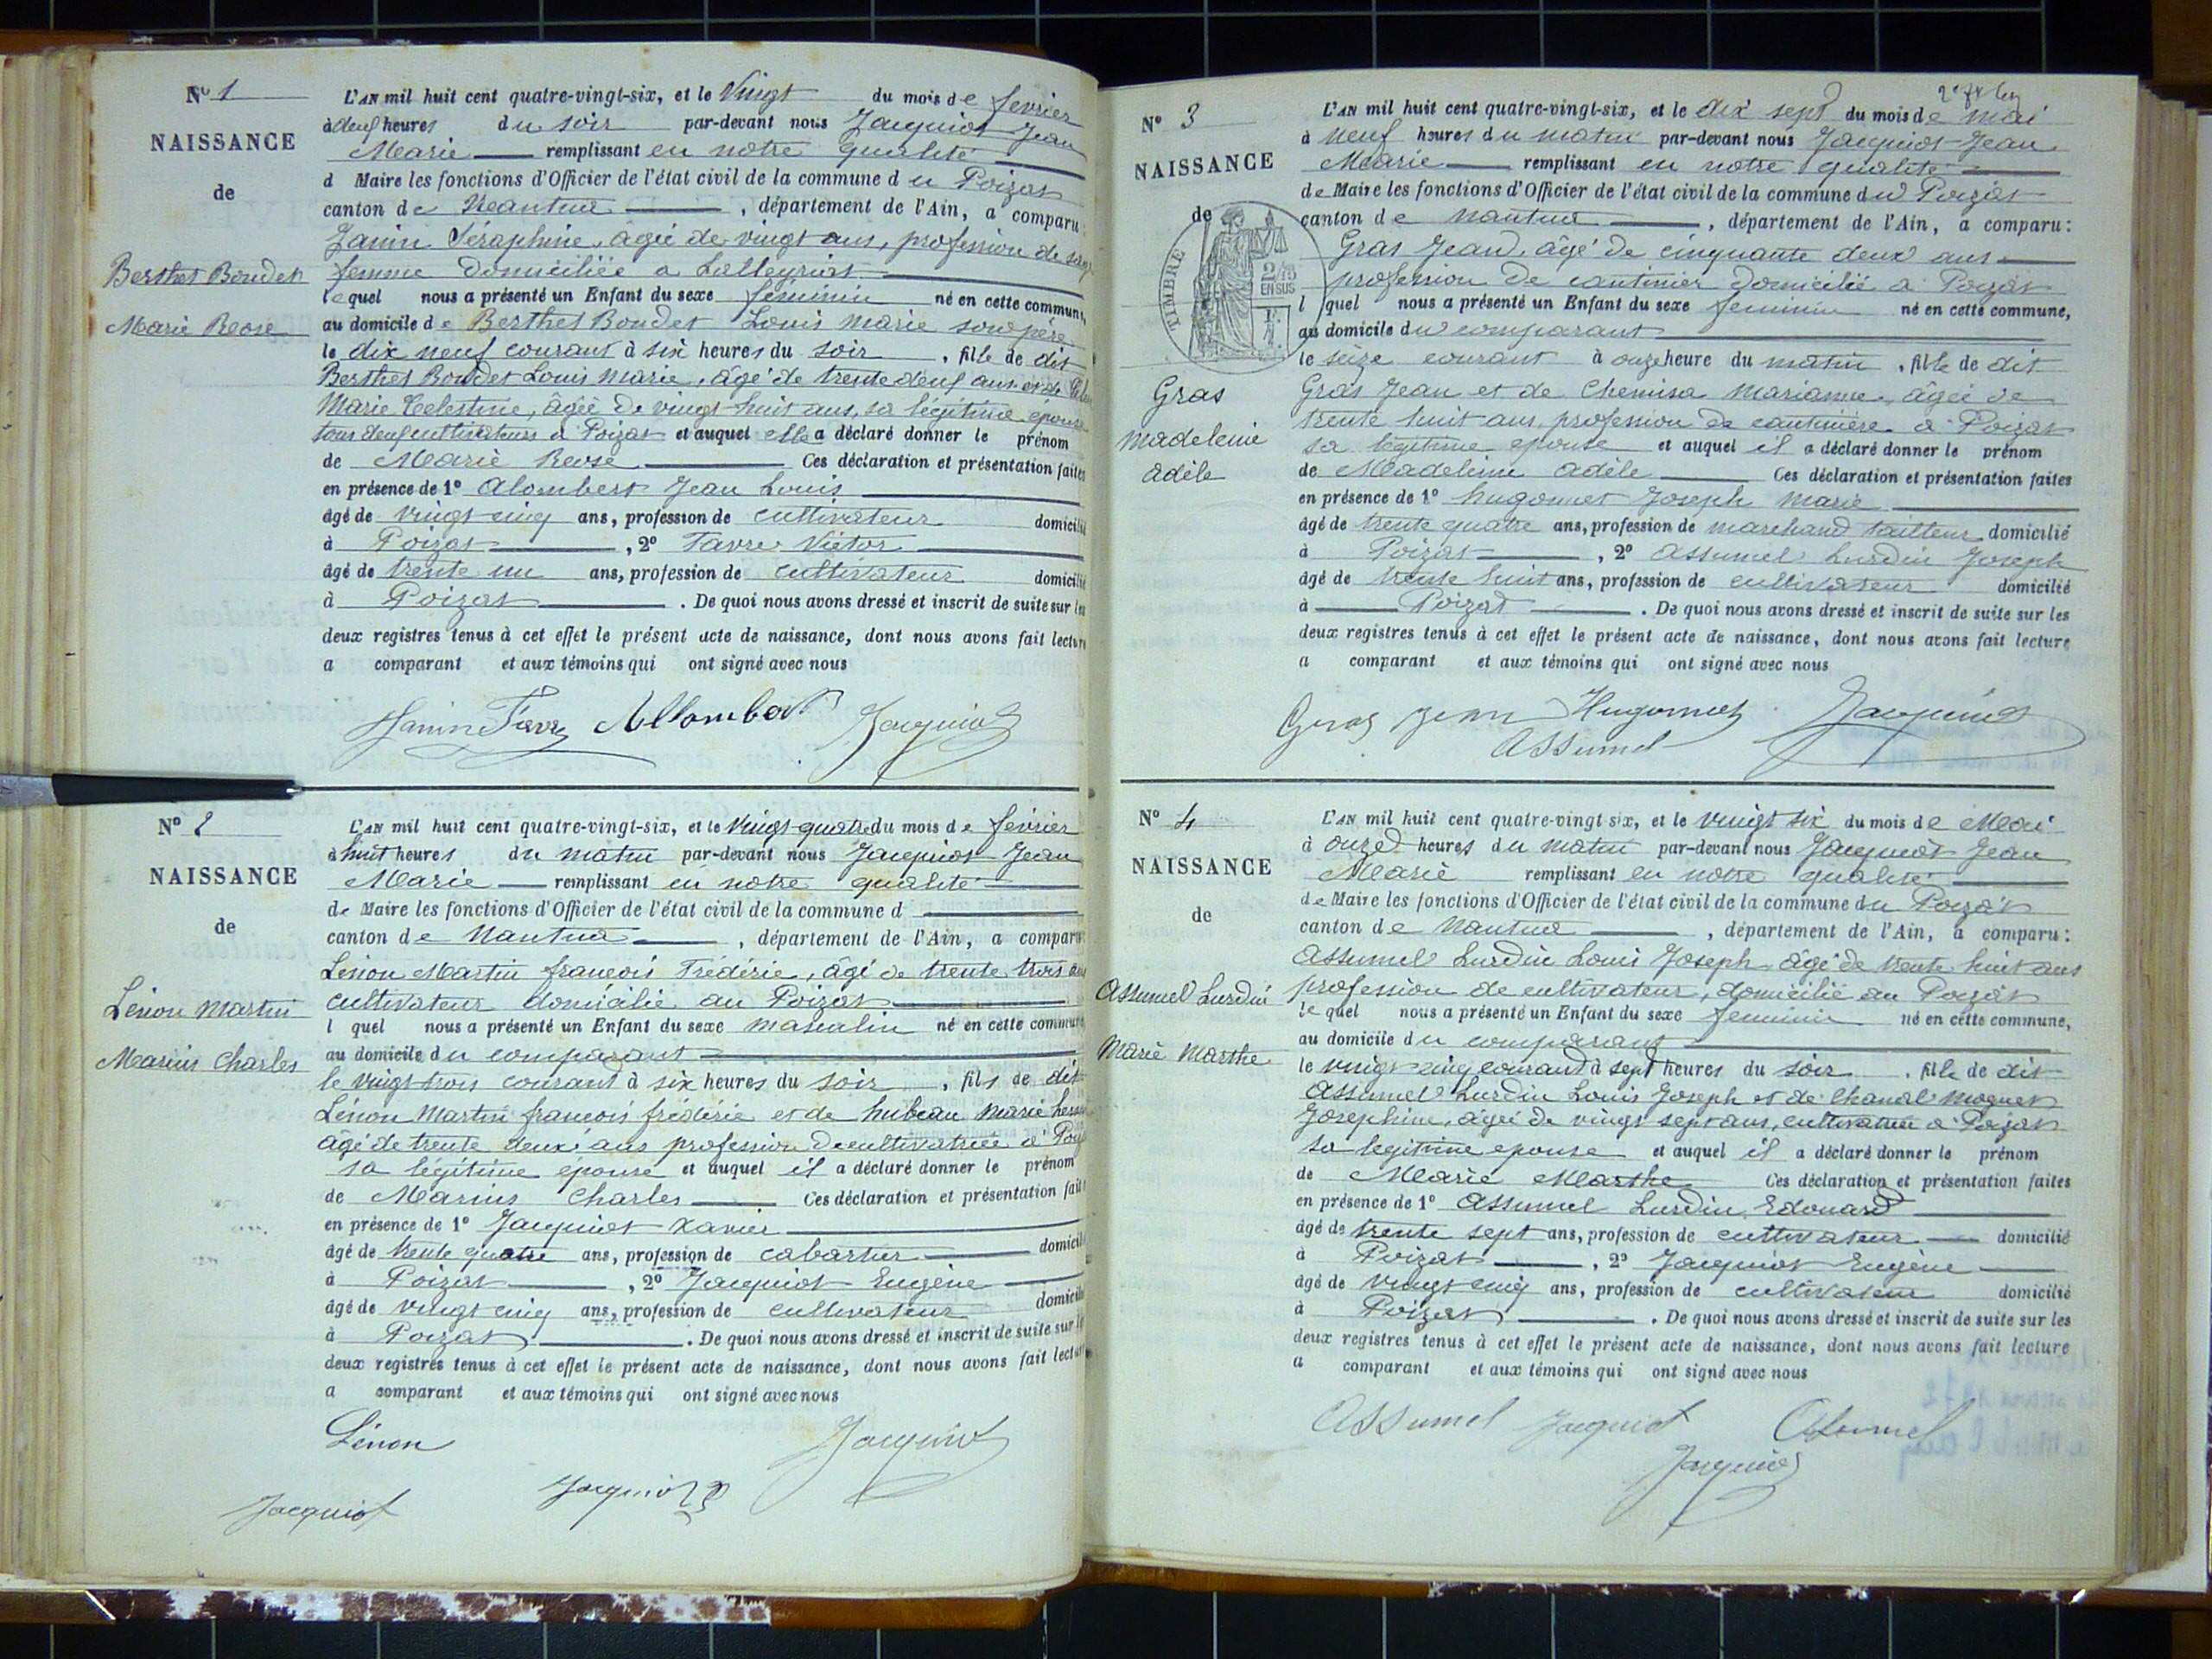 N° 1
NAISSANCE
de
Berthet Bondet
Marie Rose
L'AN mil huit cent quatre-vingt-six, et le Vingt du mois de fevrier
à deux heures du soir par-devant nous Jacquiot Jean
Marie remplissant en notre qualité
d Maire les fonctions d'Officier de l'état civil de la commune du Poizat
canton de Nantua, département de l'Ain, a comparu:
Janin Séraphine, agée de vingt ans, profession de sage
femme domiciliée a Lalleyriat
lequel nous a présenté un Enfant du sexe féminin né en cette commune,
au domicile de Berthet Bondet Louis Marie son père
le dix neuf courant à six heures du soir, fille de dit
Berthet Bondet Louis Marie, âgé de trente deux ans et de
Marie Celestine, âgée de vingt huit ans, sa légitime epouse
tous deux cultivateurs à Poizat et auquel elle a déclaré donner le prénom
de Marie Rose Ces déclaration et présentation faites
en présence de 1° Alombert Jean Louis
âgé de vingt cinq ans, profession de cultivateur domicilié
à Poizat, 2° Favre Victor
âgé de trente un ans, profession de cultivateur domicilié
à Poizat. De quoi nous avons dressé et inscrit de suite sur les
deux registres tenus à cet effet le présent acte de naissance, dont nous avons fait lecture
a comparant et aux témoins qui ont signé avec nous
Janin Favre Allombert Jacquiot
N° 2
NAISSANCE
de
Lénon Martin
Marius Charles
L'AN mil huit cent quatre-vingt-six, et le Vingt-quatre du mois de fevrier
à huit heures du matin par-devant nous Jacquiot Jean
Marie remplissant en notre qualité
de Maire les fonctions d'Officier de l'état civil de la commune d
canton de Nantua, département de l'Ain, a comparu
Lénon Martin françois Frédéric, âgé de trente trois ans
cultivateur domicilié au Poizat
l quel nous a présenté un Enfant du sexe masculin né en cette commune
au domicile du comparant
le vingt-trois courant à six heures du soir, fils de dit
Lénon Martin françois frédéric et de hubeau Marie
âgé de trente deux ans profession de cultivatrice à
sa légitime épouse et auquel il a déclaré donner le prénom
de Marius Charles Ces déclaration et présentation faites
en présence de 1° Jacquiot Xavier
âgé de trente quatre ans, profession de cabartier domicilié
à Poizat, 2° Jacquiot Eugène
âgé de vingt cinq ans, profession de cultivateur domicilié
à Poizat. De quoi nous avons dressé et inscrit de suite sur les
deux registres tenus à cet effet le présent acte de naissance, dont nous avons fait lecture
a comparant et aux témoins qui ont signé avec nous
Lénon Jacquiot
Jacquiot Jacquiot
N° 3
NAISSANCE
de
TIMBRE
2/10 EN SUS
Gras
Madeleine
Adèle
L'AN mil huit cent quatre-vingt-six, et le dix sept du mois de mai
à neuf heures du matin par-devant nous Jacquiot Jean
Marie remplissant en notre qualité
de Maire les fonctions d'Officier de l'état civil de la commune du Poizat
canton de Nantua, département de l'Ain, a comparu:
Gras Jean, âgé de cinquante deux ans
profession de cantinier domicilié a Poizat
l quel nous a présenté un Enfant du sexe feminin né en cette commune,
au domicile du comparant
le seize courant à onze heure du matin, fille de dit
Gras Jean et de Chemisa Marianne, âgée de
trente huit ans, profession de cantinière a Poizat
sa légitime épouse et auquel il a déclaré donner le prénom
de Madeleine Adèle Ces déclaration et présentation faites
en présence de 1° hugonnet Joseph Marie
âgé de trente quatre ans, profession de marchand tailleur domicilié
à Poizat, 2° Assumel Lurdin Joseph
âgé de trente huit ans, profession de cultivateur domicilié
à Poizat. De quoi nous avons dressé et inscrit de suite sur les
deux registres tenus à cet effet le présent acte de naissance, dont nous avons fait lecture
a comparant et aux témoins qui ont signé avec nous
Gras Jean Hugonnet Jacquiot
Assumel
N° 4
NAISSANCE
de
Assumel Lurdin
Marie Marthe
L'AN mil huit cent quatre-vingt six, et le vingt six du mois de Mai
à onze heures du matin par-devant nous Jacquiot Jean
Marie remplissant en notre qualité
de Maire les fonctions d'Officier de l'état civil de la commune du Poizat
canton de Nantua, département de l'Ain, a comparu:
Assumel Lurdin Louis Joseph âgé de trente huit ans
profession de cultivateur, domicilié au Poizat
le quel nous a présenté un Enfant du sexe feminin né en cette commune,
au domicile du comparant
le vingt cinq courant à sept heures du soir, fille de dit
Assumel Lurdin Louis Joseph et de Chanal Moguet
Josephine, âgée de vingt sept ans, cultivatrice a Poizat
sa legitime epouse et auquel il a déclaré donner le prénom
de Marie Marthe Ces déclaration et présentation faites
en présence de 1° Assumel Lurdin Edouard
âgé de trente sept ans, profession de cultivateur domicilié
à Poizat, 2° Jacquiot Eugène
âgé de vingt cinq ans, profession de cultivateur domicilié
à Poizat. De quoi nous avons dressé et inscrit de suite sur les
deux registres tenus à cet effet le présent acte de naissance, dont nous avons fait lecture
a comparant et aux témoins qui ont signé avec nous
Assumel Jacquiot Assumel
Jacquiot